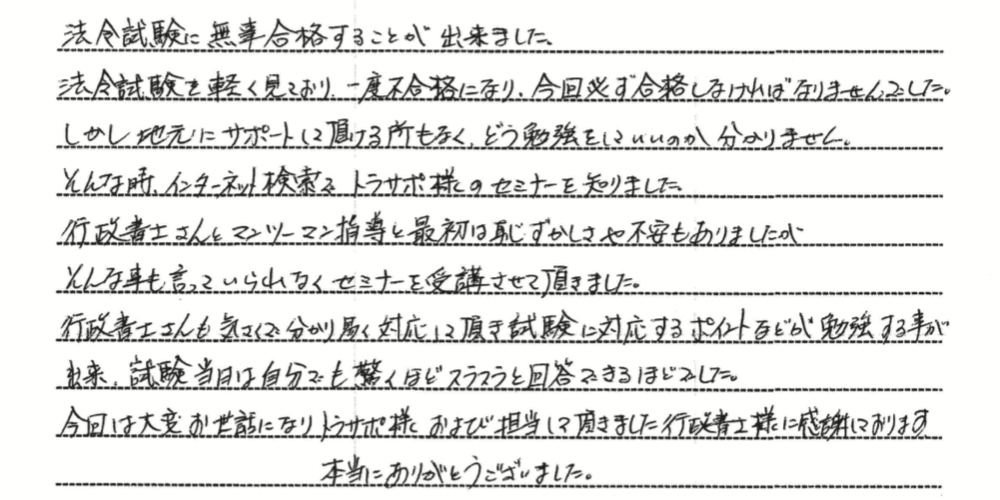 法令試験に無事合格することが出来ました。
法令試験を軽く見ており、一度不合格になり、今回必ず合格しなければなりませんでした。
しかし地元にサポートして頂ける所もなく、どう勉強をしていいのか分かりません。
そんな時、インターネット検索で トラサポ様のセミナーを知りました。
行政書士さんとマンツーマン指導と最初は恥ずかしさや不安もありましたが
そんな事も言っていられなくセミナーを受講させて頂きました。
行政書士さんも気さくで分かり易く対応して頂き試験に対応するポイントなどが勉強する事が
出来、試験当日は自分でも驚くほどスラスラと回答できるほどでした。
今回は大変お世話になりトラサポ様および担当して頂きました行政書士様に感謝しております。
本当にありがとうございました。